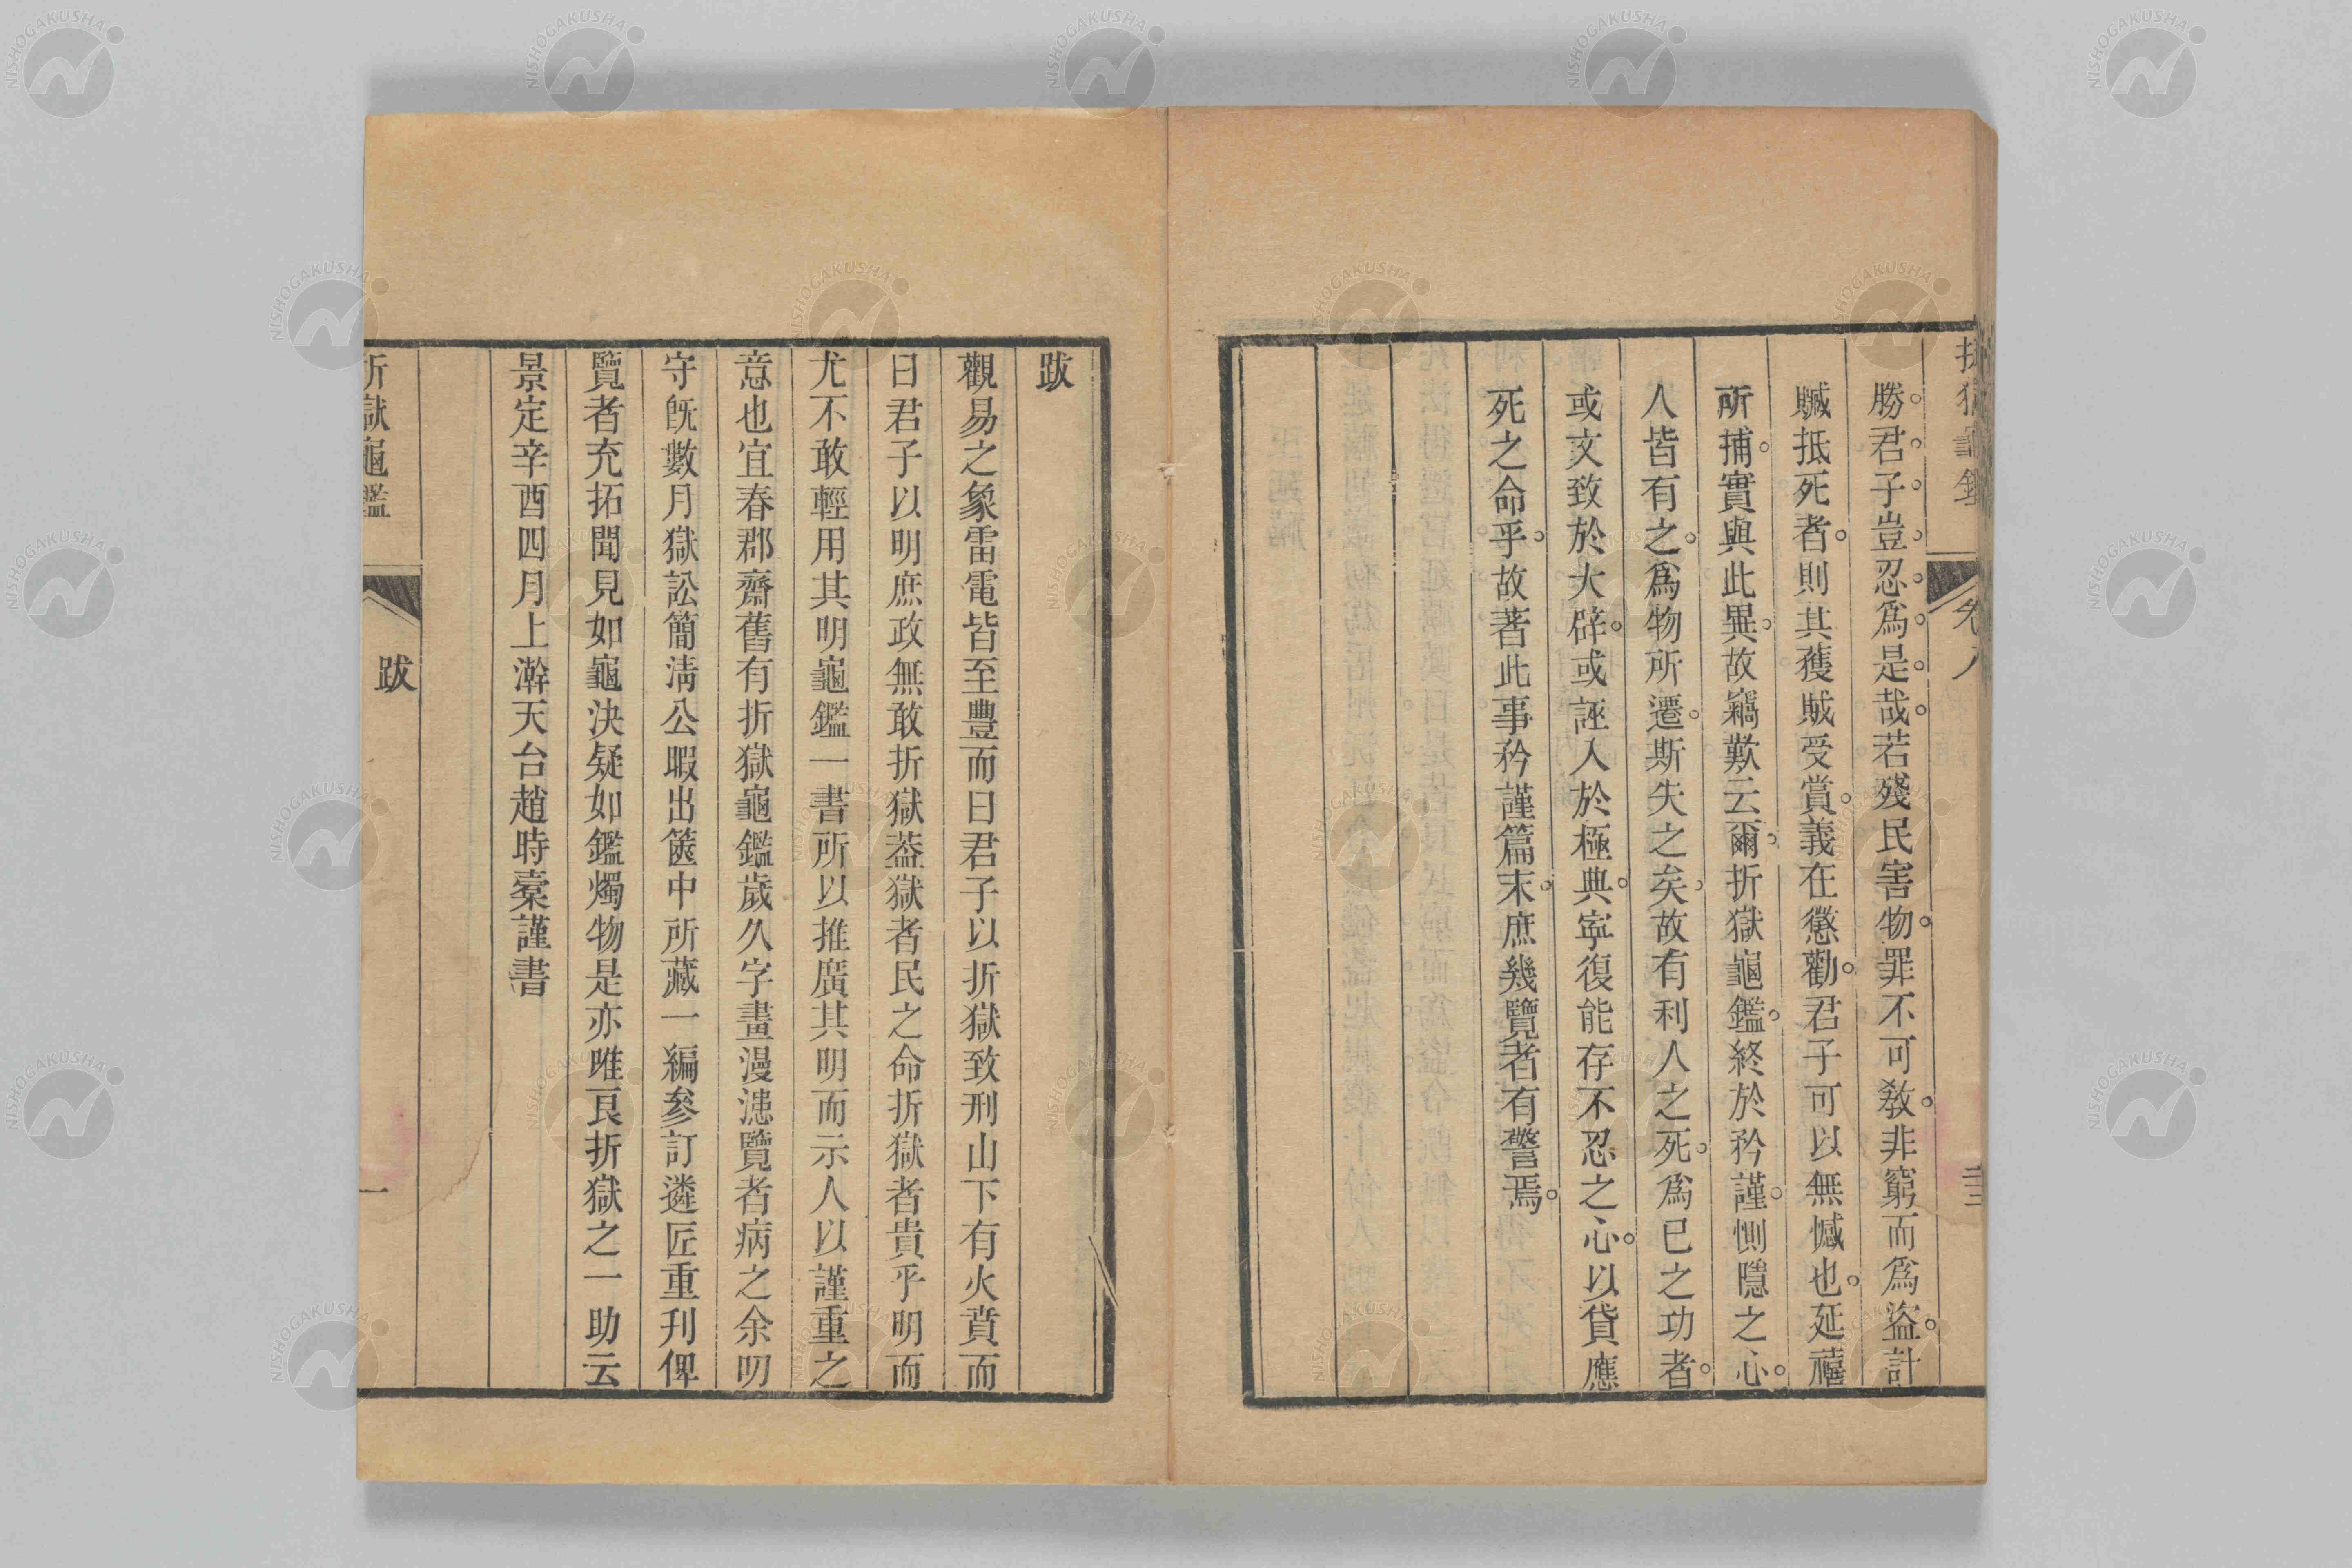 勝君子豈忍爲是哉若殘民害物罪不可敎非窮而爲盜計
贓抵死者則其獲賊受賞義在懲勸君子可以無憾也延禧
所捕實與此異故竊歎云爾折獄龜鑑終於矜謹惻隱之心
人皆有之爲物所遷斯失之矣故有利人之死爲已之功者
或文致於大辟或誣入於極典寧復能存不忍之心以貸應
死之命乎故著此事矜謹篇末庶幾覽者有警焉
跋
觀易之象雷電皆至豐而曰君子以折獄致刑山下有火賁而
曰君子以明庶政無敢折獄葢獄者民之命折獄者貴乎明而
尤不敢輕用其明龜鑑一書所以推廣其明而示人以謹重之
意也宜春郡齋舊有折獄龜鑑歲久字畫漫漶覽者病之余叨
守旣數月獄訟簡淸公暇出篋中所藏一編參訂遴匠重刋俾
覽者充拓聞見如龜決疑如鑑燭物是亦唯良折獄之一助云
景定辛酉四月上澣天台趙時橐謹書
折獄龜鑑
跋
一
NISHOGAKUSHA